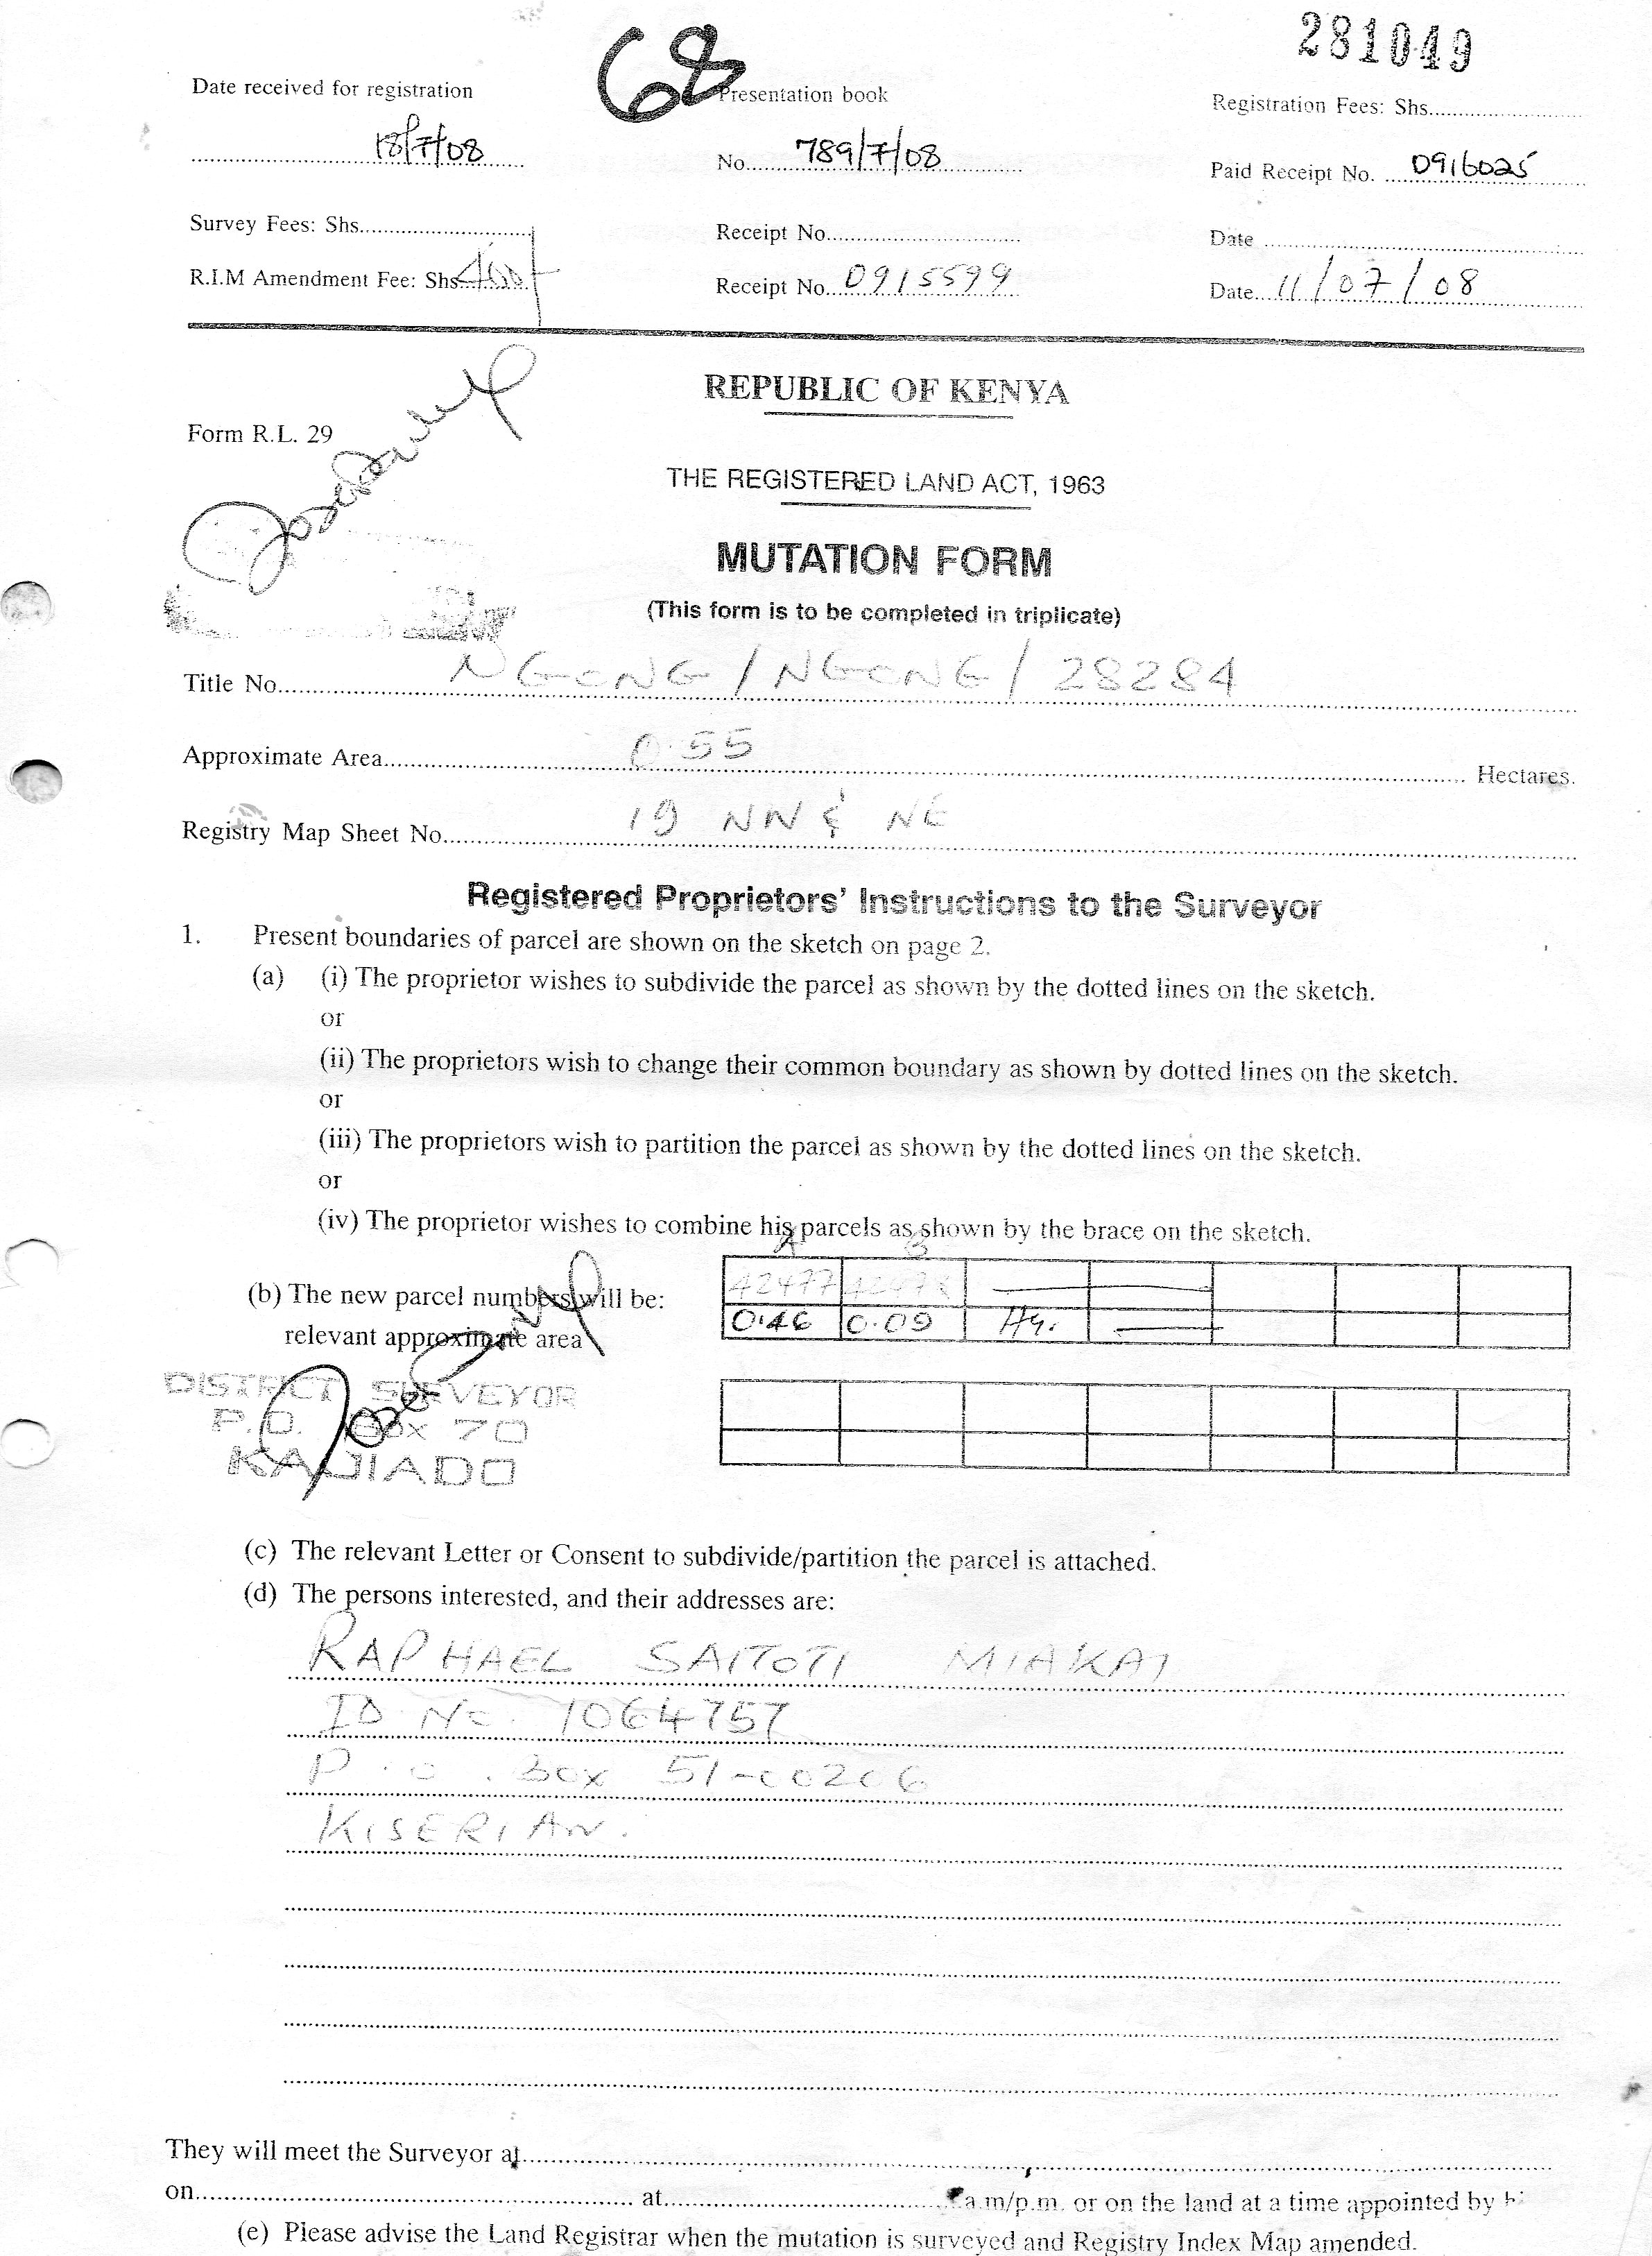 281049
68
Date received for registration
18/7/08
Presentation book
No. 789/7/08
Registration Fees: Shs.
Paid Receipt No. 0916025
Survey Fees: Shs.
Receipt No.
Date
R.I.M Amendment Fee: Shs. 400/
Receipt No. 0915599
Date. 11/07/08
REPUBLIC OF KENYA
Form R.L. 29
THE REGISTERED LAND ACT, 1963
MUTATION FORM
(This form is to be completed in triplicate)
Title No. NGONG / NGONG / 28284
Approximate Area 0.55 Hectares.
Registry Map Sheet No. 19 NW & NE
Registered Proprietors' Instructions to the Surveyor
1. Present boundaries of parcel are shown on the sketch on page 2.
(a) (i) The proprietor wishes to subdivide the parcel as shown by the dotted lines on the sketch.
or
(ii) The proprietors wish to change their common boundary as shown by dotted lines on the sketch.
or
(iii) The proprietors wish to partition the parcel as shown by the dotted lines on the sketch.
or
(iv) The proprietor wishes to combine his parcels as shown by the brace on the sketch.
A B
(b) The new parcel numbers will be: 42477 42478
relevant approximate area 0.46 0.09 Ha.
DISTRICT SURVEYOR
P.O. Box 70
KAJIADO
(c) The relevant Letter or Consent to subdivide/partition the parcel is attached.
(d) The persons interested, and their addresses are:
RAPHAEL SAITOTI MIAKAI
ID No. 1064757
P.O. Box 51-00206
KISERIAN.
They will meet the Surveyor at
on at a.m/p.m. or on the land at a time appointed by
(e) Please advise the Land Registrar when the mutation is surveyed and Registry Index Map amended.